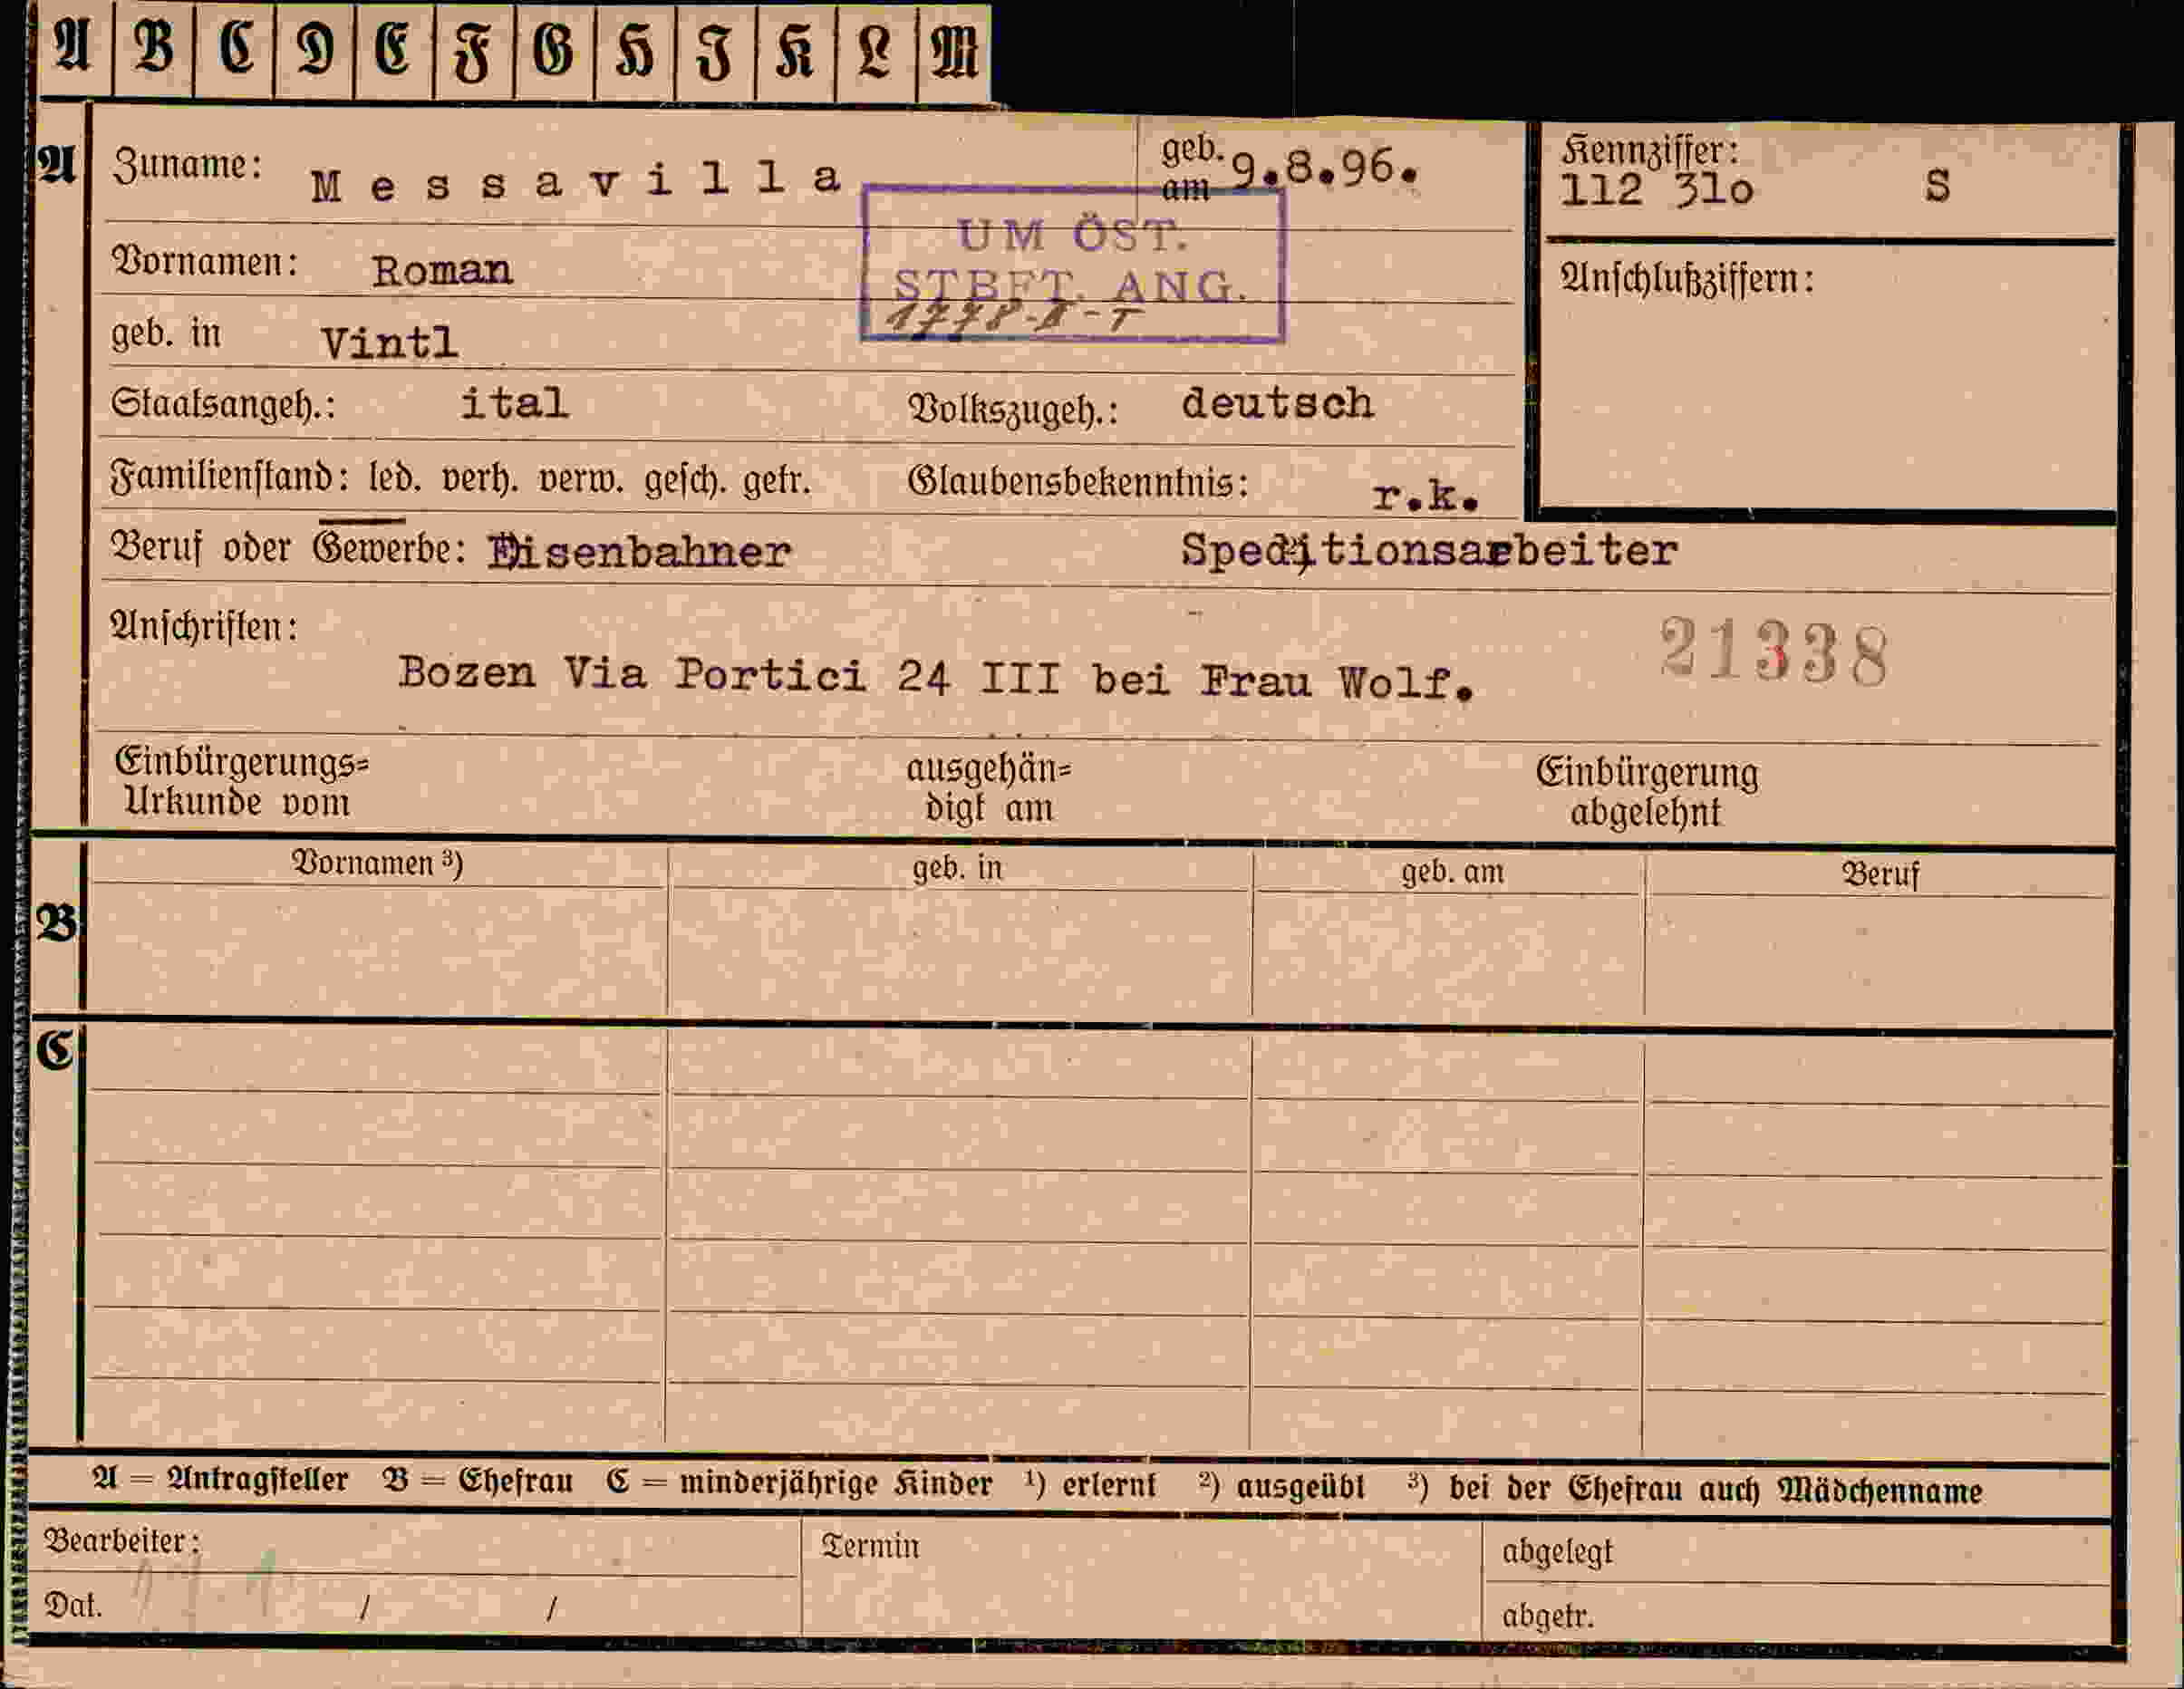 A B C D E F G H I K L M
A Zuname: Messavilla geb. am 9.8.96. Kennziffer: 112 31o S
UM ÖST.
Vornamen: Roman STBFT. ANG. Anschlußziffern:
1778-A-T
geb. in Vintl
Staatsangeh.: ital Volkszugeh.: deutsch
Familienstand: led. verh. verw. gesch. getr. Glaubensbekenntnis: r.k.
Beruf oder Gewerbe: Eisenbahner Speditionsarbeiter
Anschriften: 21338
Bozen Via Portici 24 III bei Frau Wolf.
Einbürgerungs= ausgehän= Einbürgerung
Urkunde vom digt am abgelehnt
Vornamen ³) geb. in geb. am Beruf
B
C
A = Antragsteller B = Ehefrau C = minderjährige Kinder ¹) erlernt ²) ausgeübt ³) bei der Ehefrau auch Mädchenname
Bearbeiter: Termin abgelegt
Dat. / / abgetr.